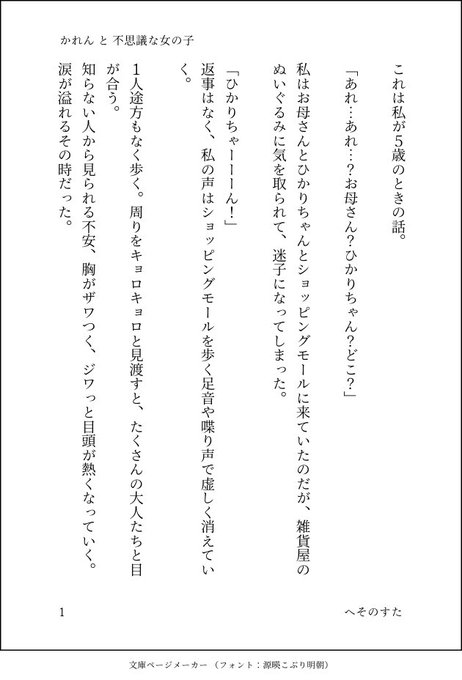 かれん と 不思議な女の子
これは私が５歳のときの話。
「あれ…あれ…？お母さん？ひかりちゃん？どこ？」
私はお母さんとひかりちゃんとショッピングモールに来ていたのだが、雑貨屋の
ぬいぐるみに気を取られて、迷子になってしまった。
「ひかりちゃーーーん！」
返事はなく、私の声はショッピングモールを歩く足音や喋り声で虚しく消えてい
く。
１人途方もなく歩く。周りをキョロキョロと見渡すと、たくさんの大人たちと目
が合う。
知らない人から見られる不安、胸がザワつく、ジワっと目頭が熱くなっていく。
涙が溢れるその時だった。
へそのすた
1
文庫ページメーカー（フォント：源暎こぶり明朝）